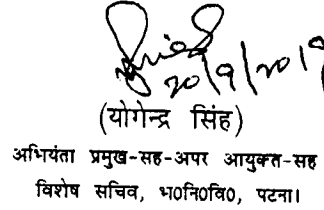 20/9/2019
(योगेन्द्र सिंह)
अभियंता प्रमुख-सह-अपर आयुक्त-सह
विशेष सचिव, भ0नि0वि0, पटना।